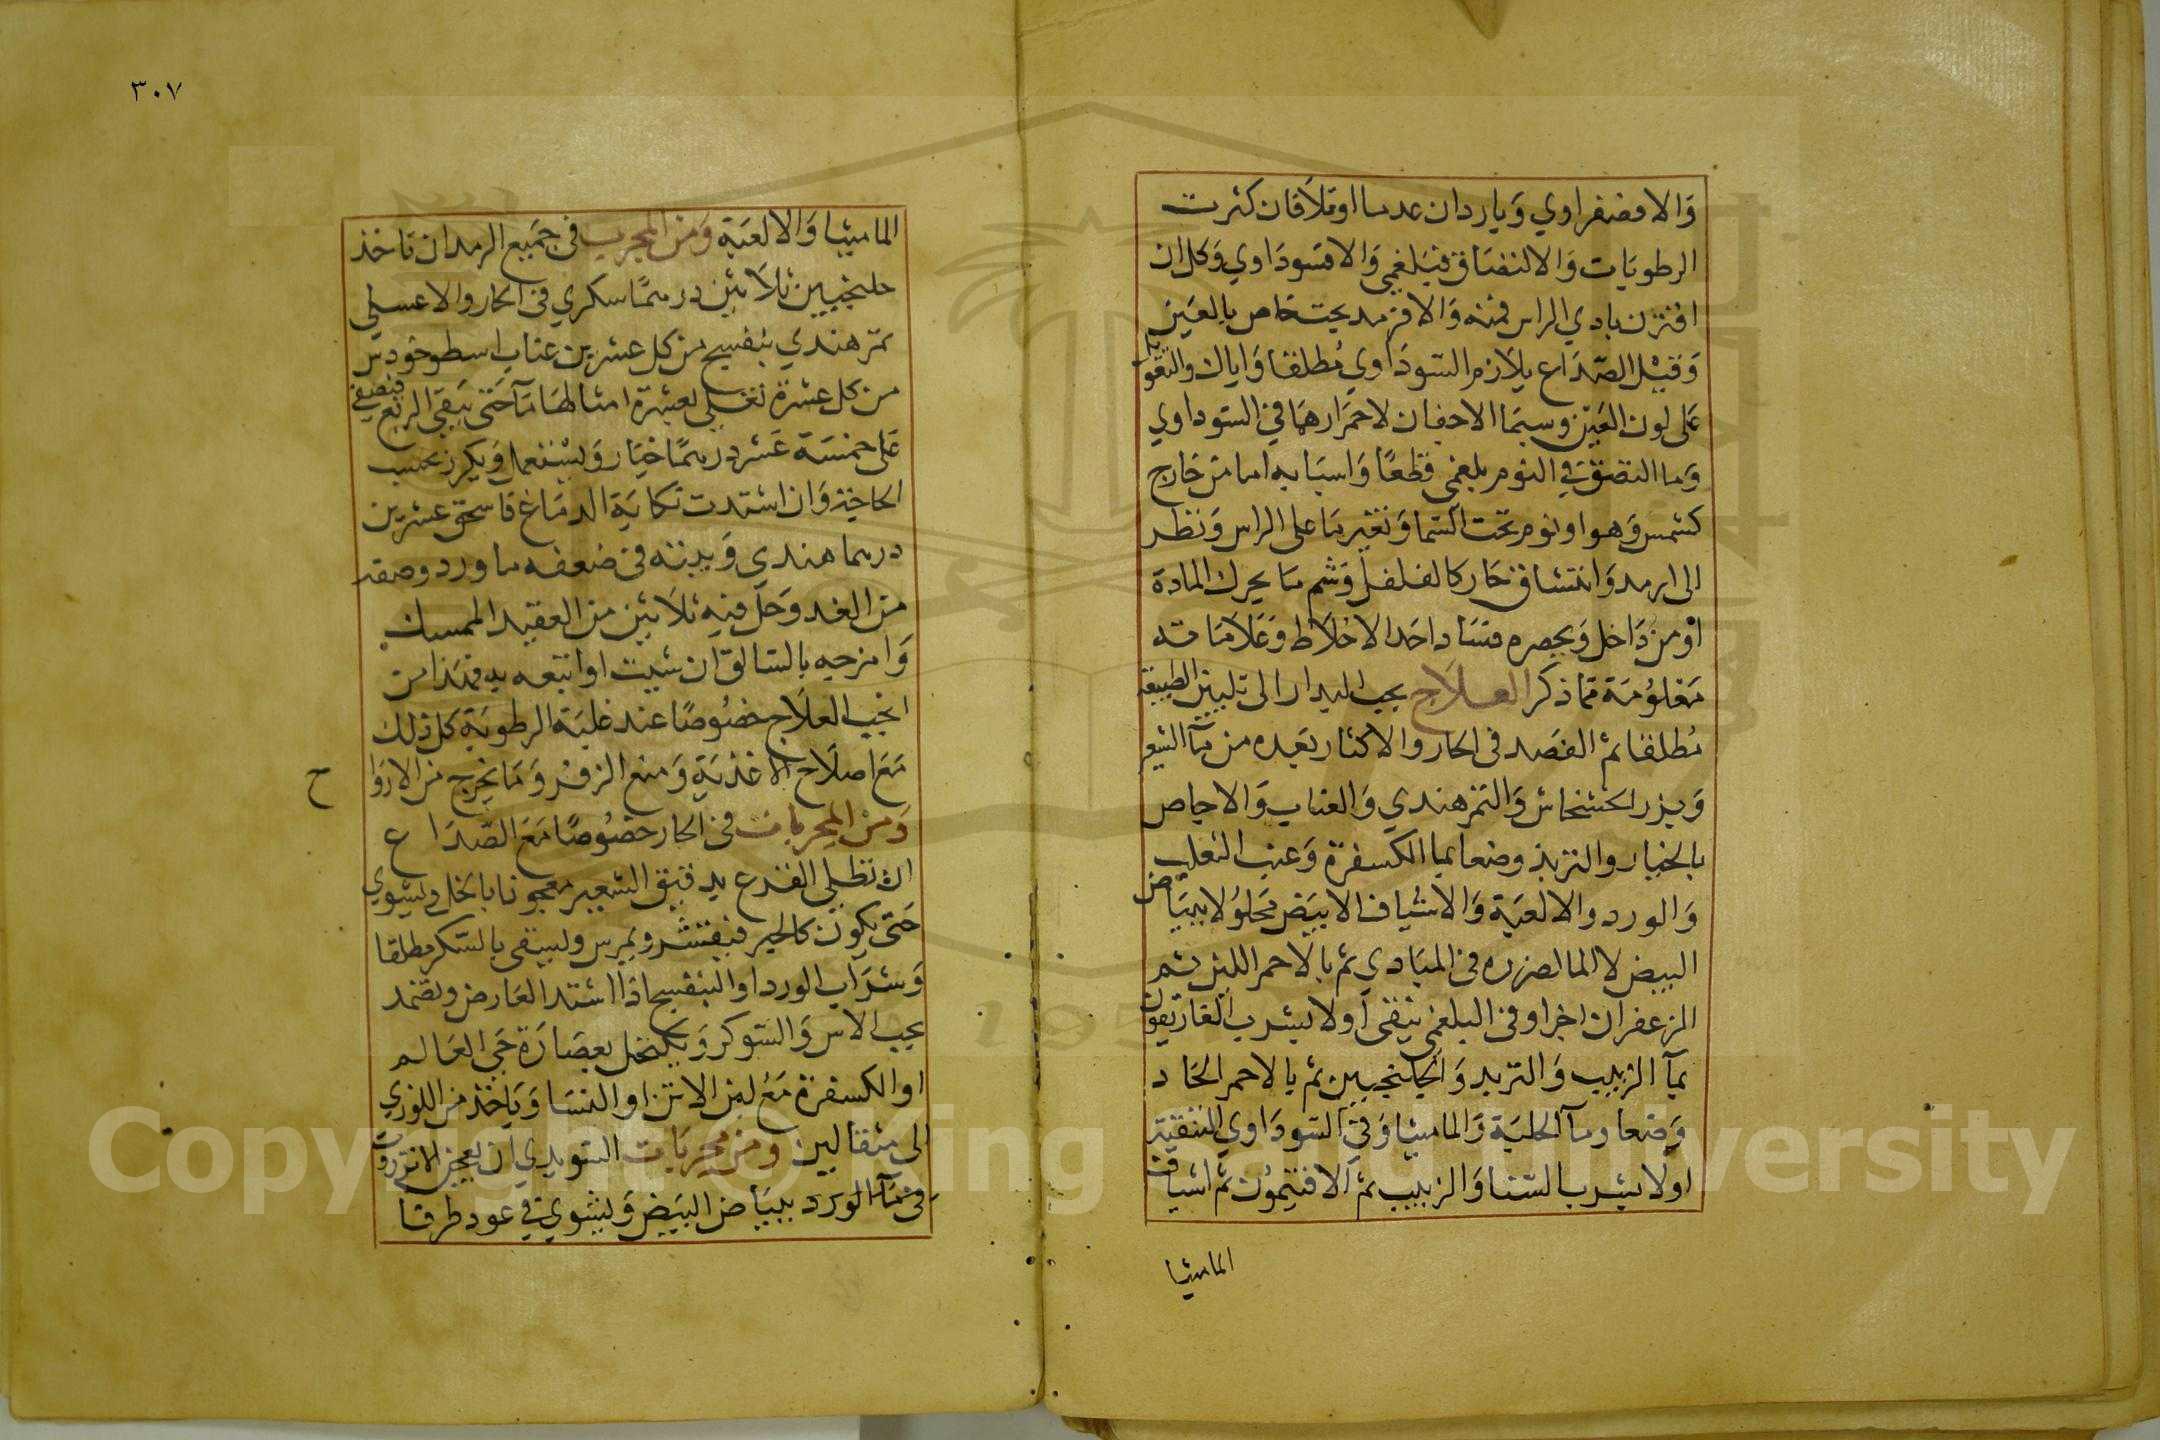 والا فصفراوي وباردان عدما او قلا فان كثرت
الرطوبات والالتصاق فبلغمي والا فسوداوي وكل ان
اقترن باذي الراس فمنه والا فرمد بحت خاص بالعين
وقيل الصداع يلازم السوداوي مطلقا واياك والتعويل
على لون العين وسيما الاجفان لاحمرارهما في السوداوي
وما التصق في النوم بلغمي قطعا واسبابه اما من خارج
كشمس وهوا ونوم تحت السما وتغير ما على الراس ونظر
الى ارمد وانتشاق حار كالفلفل وشم ما يحرك المادة
او من داخل ويحصره فساد احد الاخلاط وعلاماته
معلومة مما ذكر العلاج يجب البدار الى تليين الطبيعة
مطلقا ثم الفصد في الحار والاكثار بعده من مآ الشعير
وبزر الخشخاش والتمر هندي والعناب والاجاص
بالخيار والتربذ وضعا بما الكسفرة وعنب الثعلب
والورد والالعبة والاشياف الابيض محلولا ببياض
البيض لا الماالصرف في المبادي ثم بالاحمر اللين ثم
الزعفران اخرا وفي البلغمي ينقى اولا بشرب الغاريقون
بمآ الزبيب والتربد والجلنجبين ثم بالاحمر الحاد
وضعا ومآ الحلبة والماميثا وفي السوداوي التنقية
اولا بشرب السنا والزبيب ثم الافتيمون ثم اشياف
الماميثا
٣٠٧
الماميثا والالعبة ومن المجرب في جميع الرمد ان تاخذ
جلنجبين ثلاثين درهما سكري في الحار والا عسلي
تمر هندي بنفسج من كل عشرين عناب اسطوخودس
من كل عشرة تغلى لعشرة امثالها مآ حتى يبقى الربع فيصفى
على خمسة عشر درهما خيار ويستعمل ويكرر بحسب
الحاجة وان اشتدت نكاية الدماغ فاسحق عشرين
درهما هندي وبيته في ضعفه ماورد وصفه
من الغد وحل فيه ثلاثين من العقيد الممسك
وامزجه بالسالق ان شيت او اتبعه به فهذا من
انجب العلاج خصوصا عند غلبة الرطوبة كل ذلك
مع اصلاح الاغذية ومنع الزفر وما يخرج من الاروا
ح
ومن المجربات في الحار خصوصا مع الصداع
ان تطلي القرع بدقيق الشعير معجونا بالخل ويشوي
حتى يكون كالجير فيقشر ويمرس ويسقى بالسكر مطلقا
وشراب الورد او البنفسج اذا اشتد العارض ويضمد
بحب الاس والسوكر ويكتحل بعصارة حي العالم
او الكسفرة مع لبن الاتن او النسا وياخذ من اللوزي
الى مثقالين ومن مجربات السويدي ان يعجن الانزروت
في مآ الورد ببياض البيض ويشوي في عود طرفا